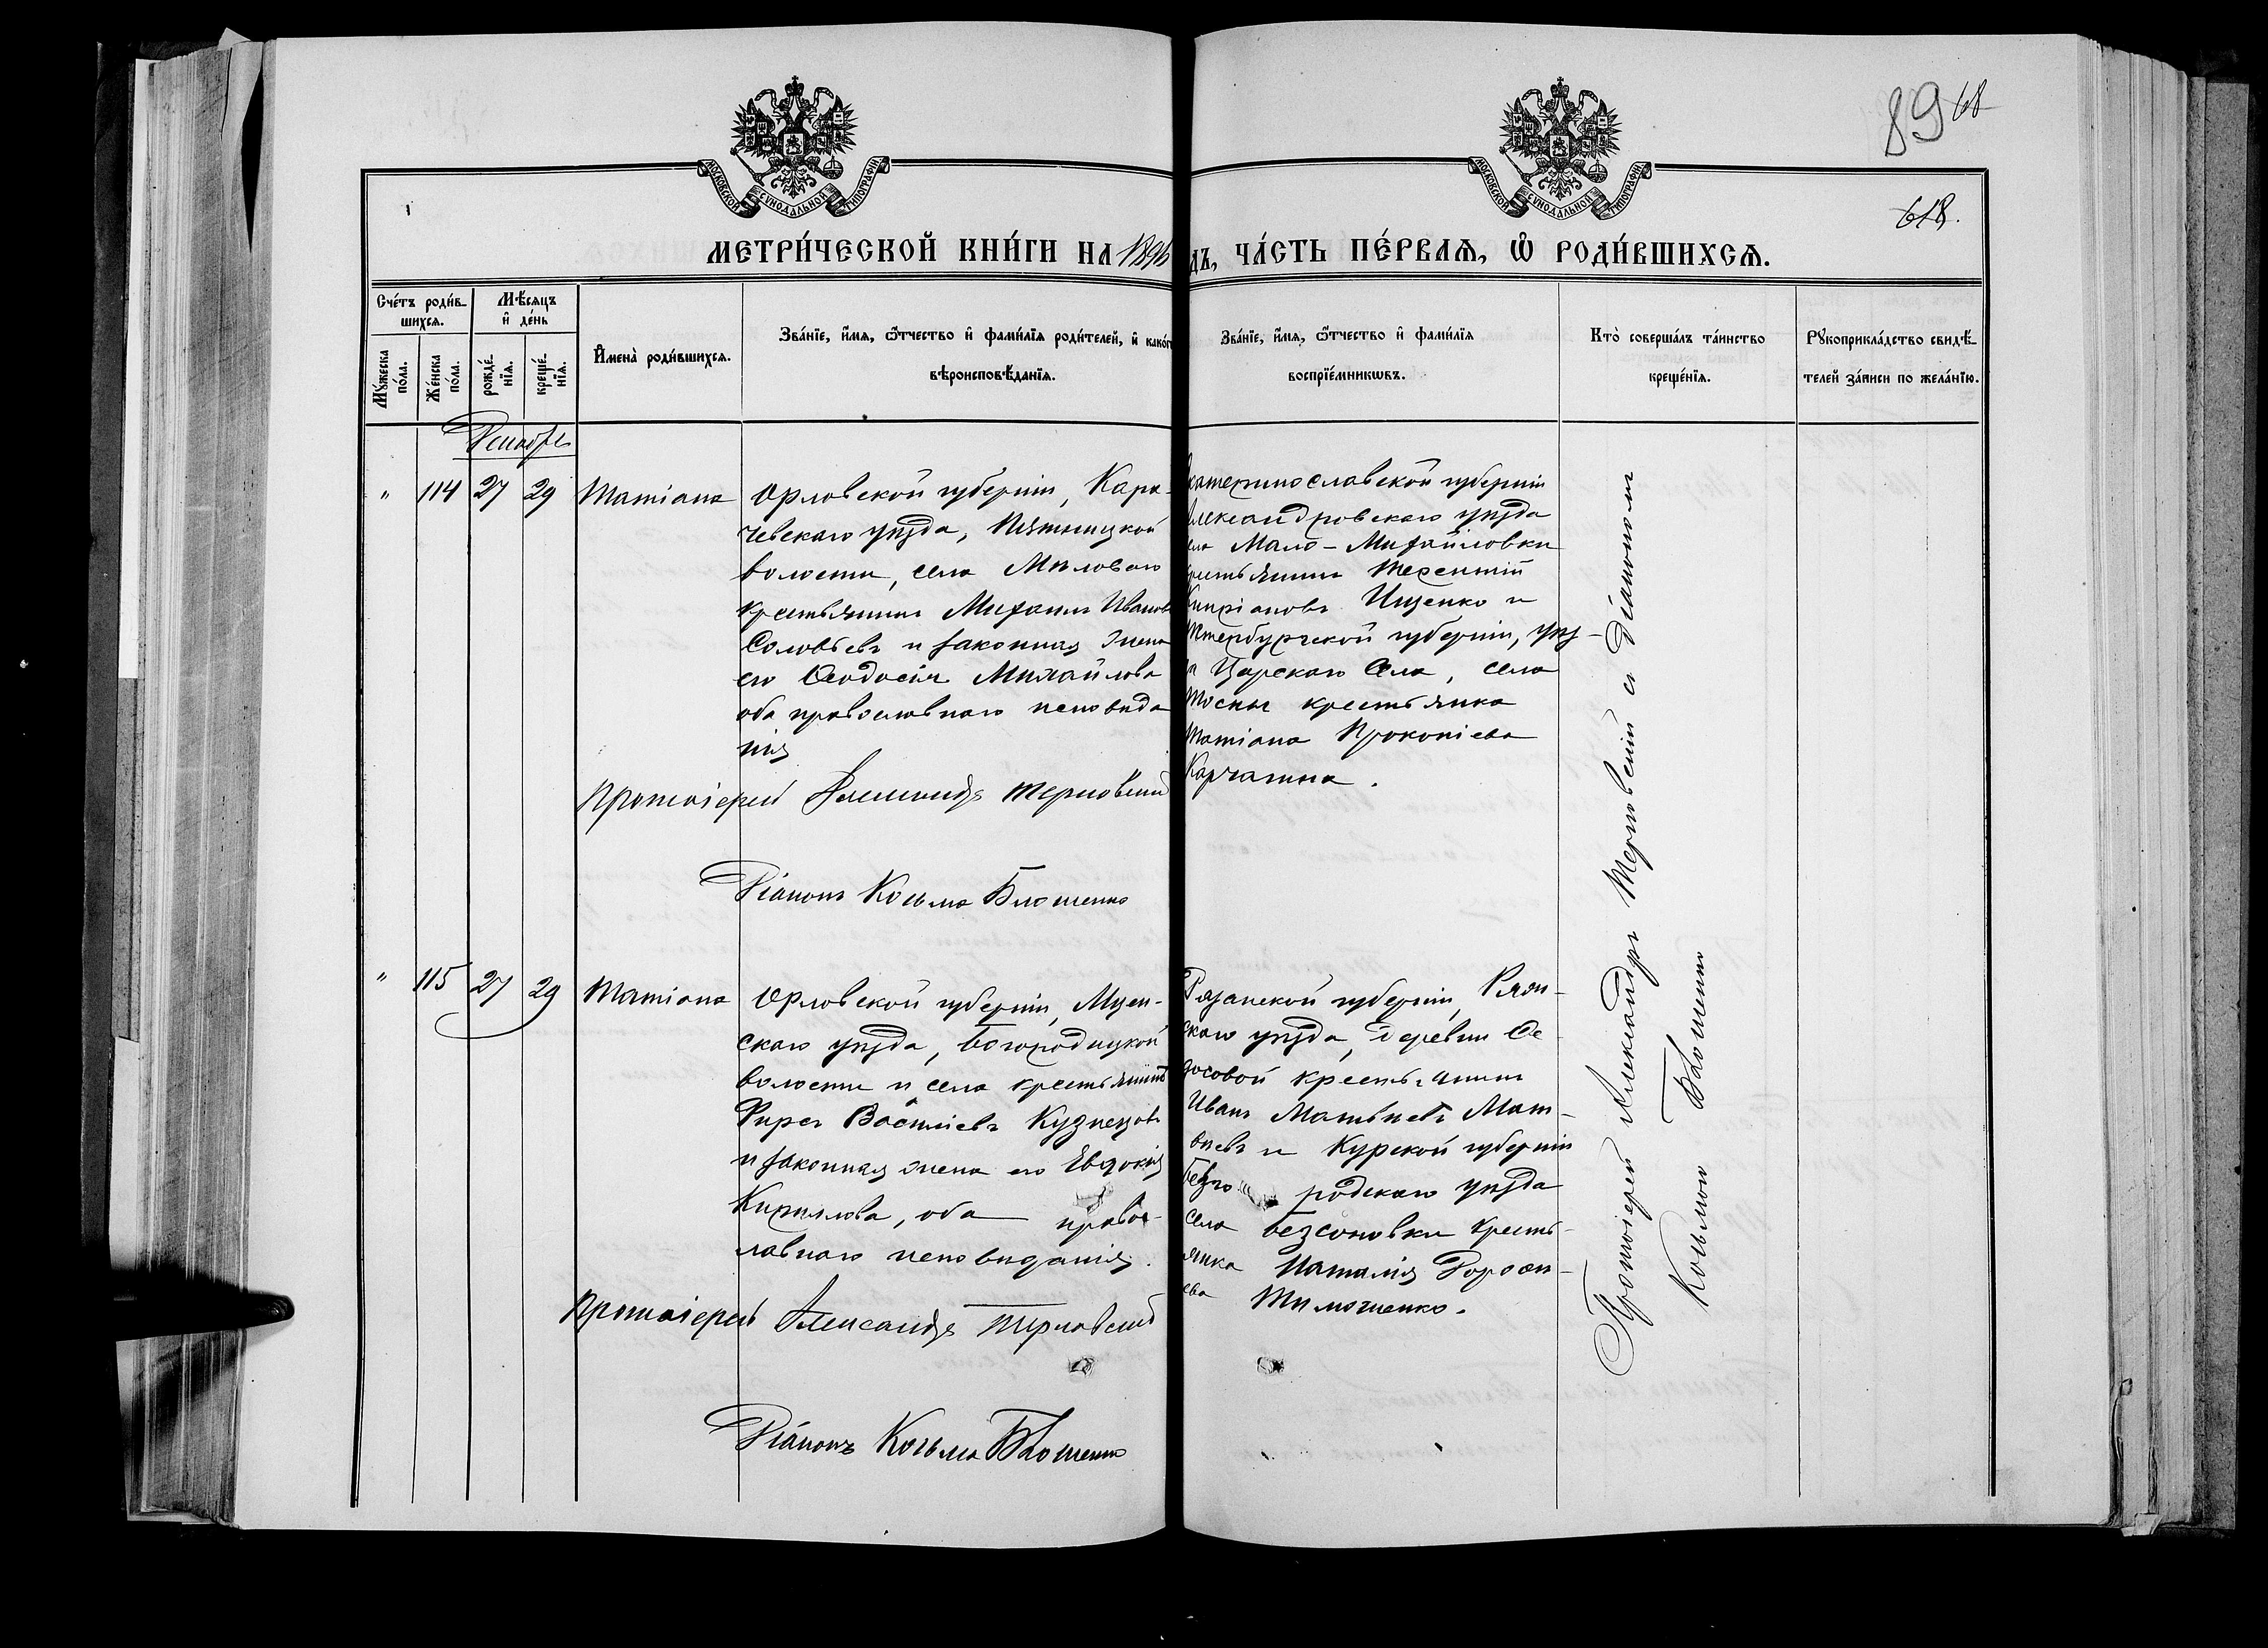 89 68
618.
МОСКОВСКОЙ СУНОДАЛЬНОЙ ТИПОГРАФІИ
МОСКОВСКОЙ СУНОДАЛЬНОЙ ТИПОГРАФІИ
МЕТРИ́ЧЕСКОЙ КНИ́ГИ НА 1896 ДЪ, ЧА́СТЬ ПЕ́РВАѦ, Ѡ҆ РОДИ́ВШИХСѦ.
Сче́тъ роди́в-
шихсѧ.
Мꙋ́жеска по́ла.
Же́нска по́ла.
Мѣ́сяцъ
и҆ де́нь
рожде́-
нїѧ.
креще́-
нїѧ.
И҆мена̀ роди́вшихсѧ.
Зва́нїе, и҆́мѧ, ѻ҆́тчество и҆ фами́лїѧ роди́телей, и҆ како́г
вѣроисповѣ́данїѧ.
Зва́нїе, и҆́мѧ, ѻ҆́тчество и҆ фами́лїѧ
воспрїе́мникѡвъ.
Кто̀ соверша́лъ та́инство
креще́нїѧ.
Рꙋкоприкла́дство свидѣ́-
телей за́писи по жела́нїю.
Декабрь
" 114 27 29 Татіана
Орловской губерніи, Кара-
чевскаго уѣзда, Пятницкой
волости, села Милового
крестьянинъ Михаилъ Иванов
Соловьевъ и законная жена
его Ѳеодосія Михайлова
оба православнаго исповѣда
нія
Протоіерей Александръ Терновскій
Діаконъ Косьма Блошенко
катеринославской губерніи
лександровскаго уѣзда
ела Мало-Михайловки
рестьянинъ Терентій
Кипріановъ Ищенко и
Петербургской губерніи, уѣз-
а Царскаго Села, села
Тосны крестьянка
Татіана Прокопіева
Карчагина.
" 115 27 29 Татіана
Орловской губерніи, Мцен-
скаго уѣзда, Богородицкой
волости и села крестьянинъ
Фирсъ Васильевъ Кузнецовъ
и законная жена его Евдокія
Кириллова, оба правос-
лавнаго исповѣданія.
Протоіерей Александръ Терновскій
Діаконъ Косьма Блошенко
Рязанской губерніи, Рязан-
скаго уѣзда, деревни Ѳе-
досовой крестьянинъ
Иванъ Матвѣевъ Мат-
вѣевъ и Курской губерніи
Бѣлго родскаго уѣзда
села Безсоновки кресть-
янка Наталія Дороѳе-
ева Тимошенко.
Протоіерей Александръ Терновскій съ діакономъ
Косьмою Блошенко